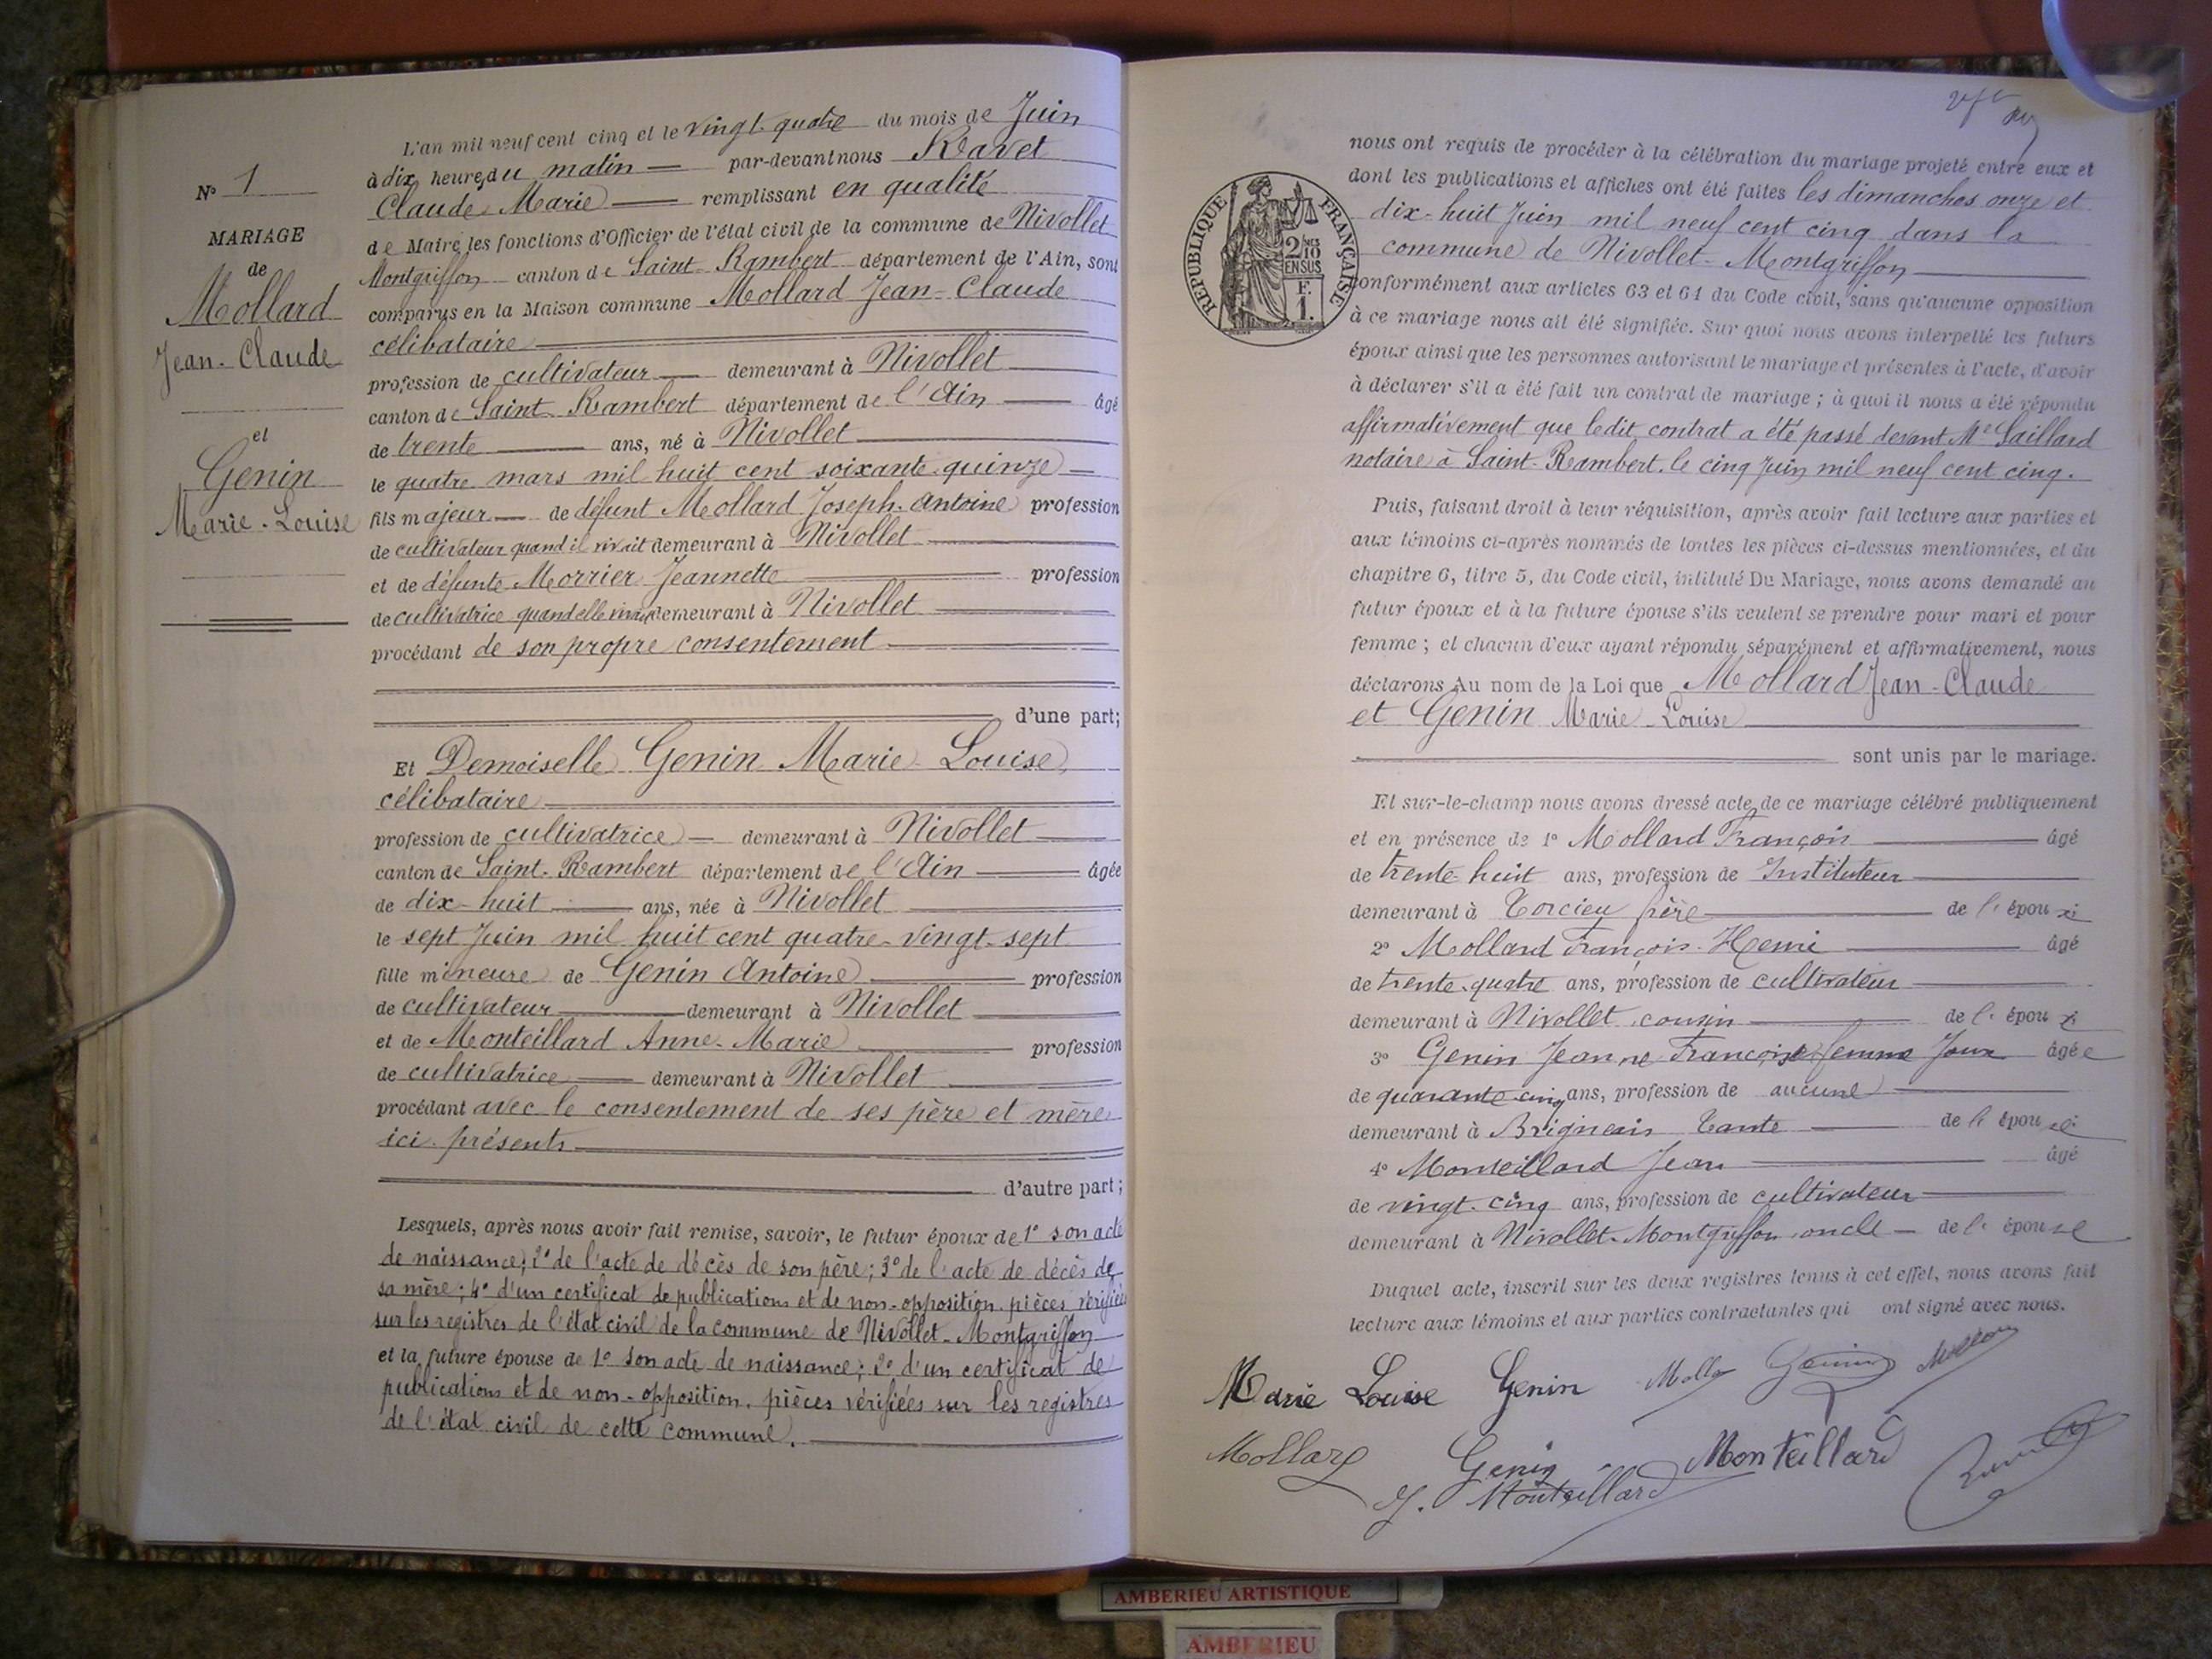 N° 1
MARIAGE
de
Mollard
Jean-Claude
et
Genin
Marie-Louise
L'an mil neuf cent cinq et le vingt-quatre du mois de Juin
à dix heures du matin par-devant nous Ravet
Claude Marie remplissant en qualité
de Maire les fonctions d'Officier de l'état civil de la commune de Nivollet
Montgriffon canton de Saint-Rambert département de l'Ain, sont
comparus en la Maison commune Mollard Jean-Claude
célibataire
profession de cultivateur demeurant à Nivollet
canton de Saint-Rambert département de l'Ain âgé
de trente ans, né à Nivollet
le quatre mars mil huit cent soixante-quinze
fils majeur de défunt Mollard Joseph-Antoine profession
de cultivateur quand il vivait demeurant à Nivollet
et de défunte Morrier Jeannette profession
de cultivatrice quand elle demeurant à Nivollet
procédant de son propre consentement
d'une part;
Et Demoiselle Genin Marie Louise,
célibataire
profession de cultivatrice demeurant à Nivollet
canton de Saint-Rambert département de l'Ain âgée
de dix-huit ans, née à Nivollet
le sept Juin mil huit cent quatre-vingt-sept
fille mineure de Genin Antoine profession
de cultivateur demeurant à Nivollet
et de Monteillard Anne-Marie profession
de cultivatrice demeurant à Nivollet
procédant avec le consentement de ses père et mère
ici présents
d'autre part;
Lesquels, après nous avoir fait remise, savoir, le futur époux de 1° son acte
de naissance; 2° de l'acte de décès de son père; 3° de l'acte de décès de
sa mère; 4° d'un certificat de publications et de non-opposition, pièces vérifiées
sur les registres de l'état civil de la commune de Nivollet-Montgriffon
et la future épouse de 1° son acte de naissance; 2° d'un certificat de
publications et de non-opposition, pièces vérifiées sur les registres
de l'état civil de cette commune.
RÉPUBLIQUE FRANÇAISE
2/10
EN SUS
F.
1.
nous ont requis de procéder à la célébration du mariage projeté entre eux et
dont les publications et affiches ont été faites les dimanches onze et
dix-huit Juin mil neuf cent cinq dans la
commune de Nivollet-Montgriffon
conformément aux articles 63 et 64 du Code civil, sans qu'aucune opposition
à ce mariage nous ait été signifiée. Sur quoi nous avons interpellé les futurs
époux ainsi que les personnes autorisant le mariage et présentes à l'acte, d'avoir
à déclarer s'il a été fait un contrat de mariage; à quoi il nous a été répondu
affirmativement que ledit contrat a été passé devant Me Saillard
notaire à Saint-Rambert, le cinq Juin mil neuf cent cinq.
Puis, faisant droit à leur réquisition, après avoir fait lecture aux parties et
aux témoins ci-après nommés de toutes les pièces ci-dessus mentionnées, et du
chapitre 6, titre 5, du Code civil, intitulé Du Mariage, nous avons demandé au
futur époux et à la future épouse s'ils veulent se prendre pour mari et pour
femme; et chacun d'eux ayant répondu séparément et affirmativement, nous
déclarons Au nom de la Loi que Mollard Jean-Claude
et Genin Marie-Louise
sont unis par le mariage.
Et sur-le-champ nous avons dressé acte de ce mariage célébré publiquement
et en présence de 1° Mollard François âgé
de trente-huit ans, profession de Instituteur
demeurant à Torcieu frère de l' époux
2° Mollard François-Henri âgé
de trente-quatre ans, profession de cultivateur
demeurant à Nivollet, cousin de l' époux
3° Genin Jeanne Françoise femme Joux âgée
de quarante-cinq ans, profession de aucune
demeurant à Brignais tante de l' épouse
4° Monteillard Jean âgé
de vingt-cinq ans, profession de cultivateur
demeurant à Nivollet-Montgriffon oncle de l' épouse
Duquel acte, inscrit sur les deux registres tenus à cet effet, nous avons fait
lecture aux témoins et aux parties contractantes qui ont signé avec nous.
Marie Louise Genin Genin Mollard
Mollard Genin Monteillard
J. Monteillard
AMBERIEU ARTISTIQUE
AMBERIEU